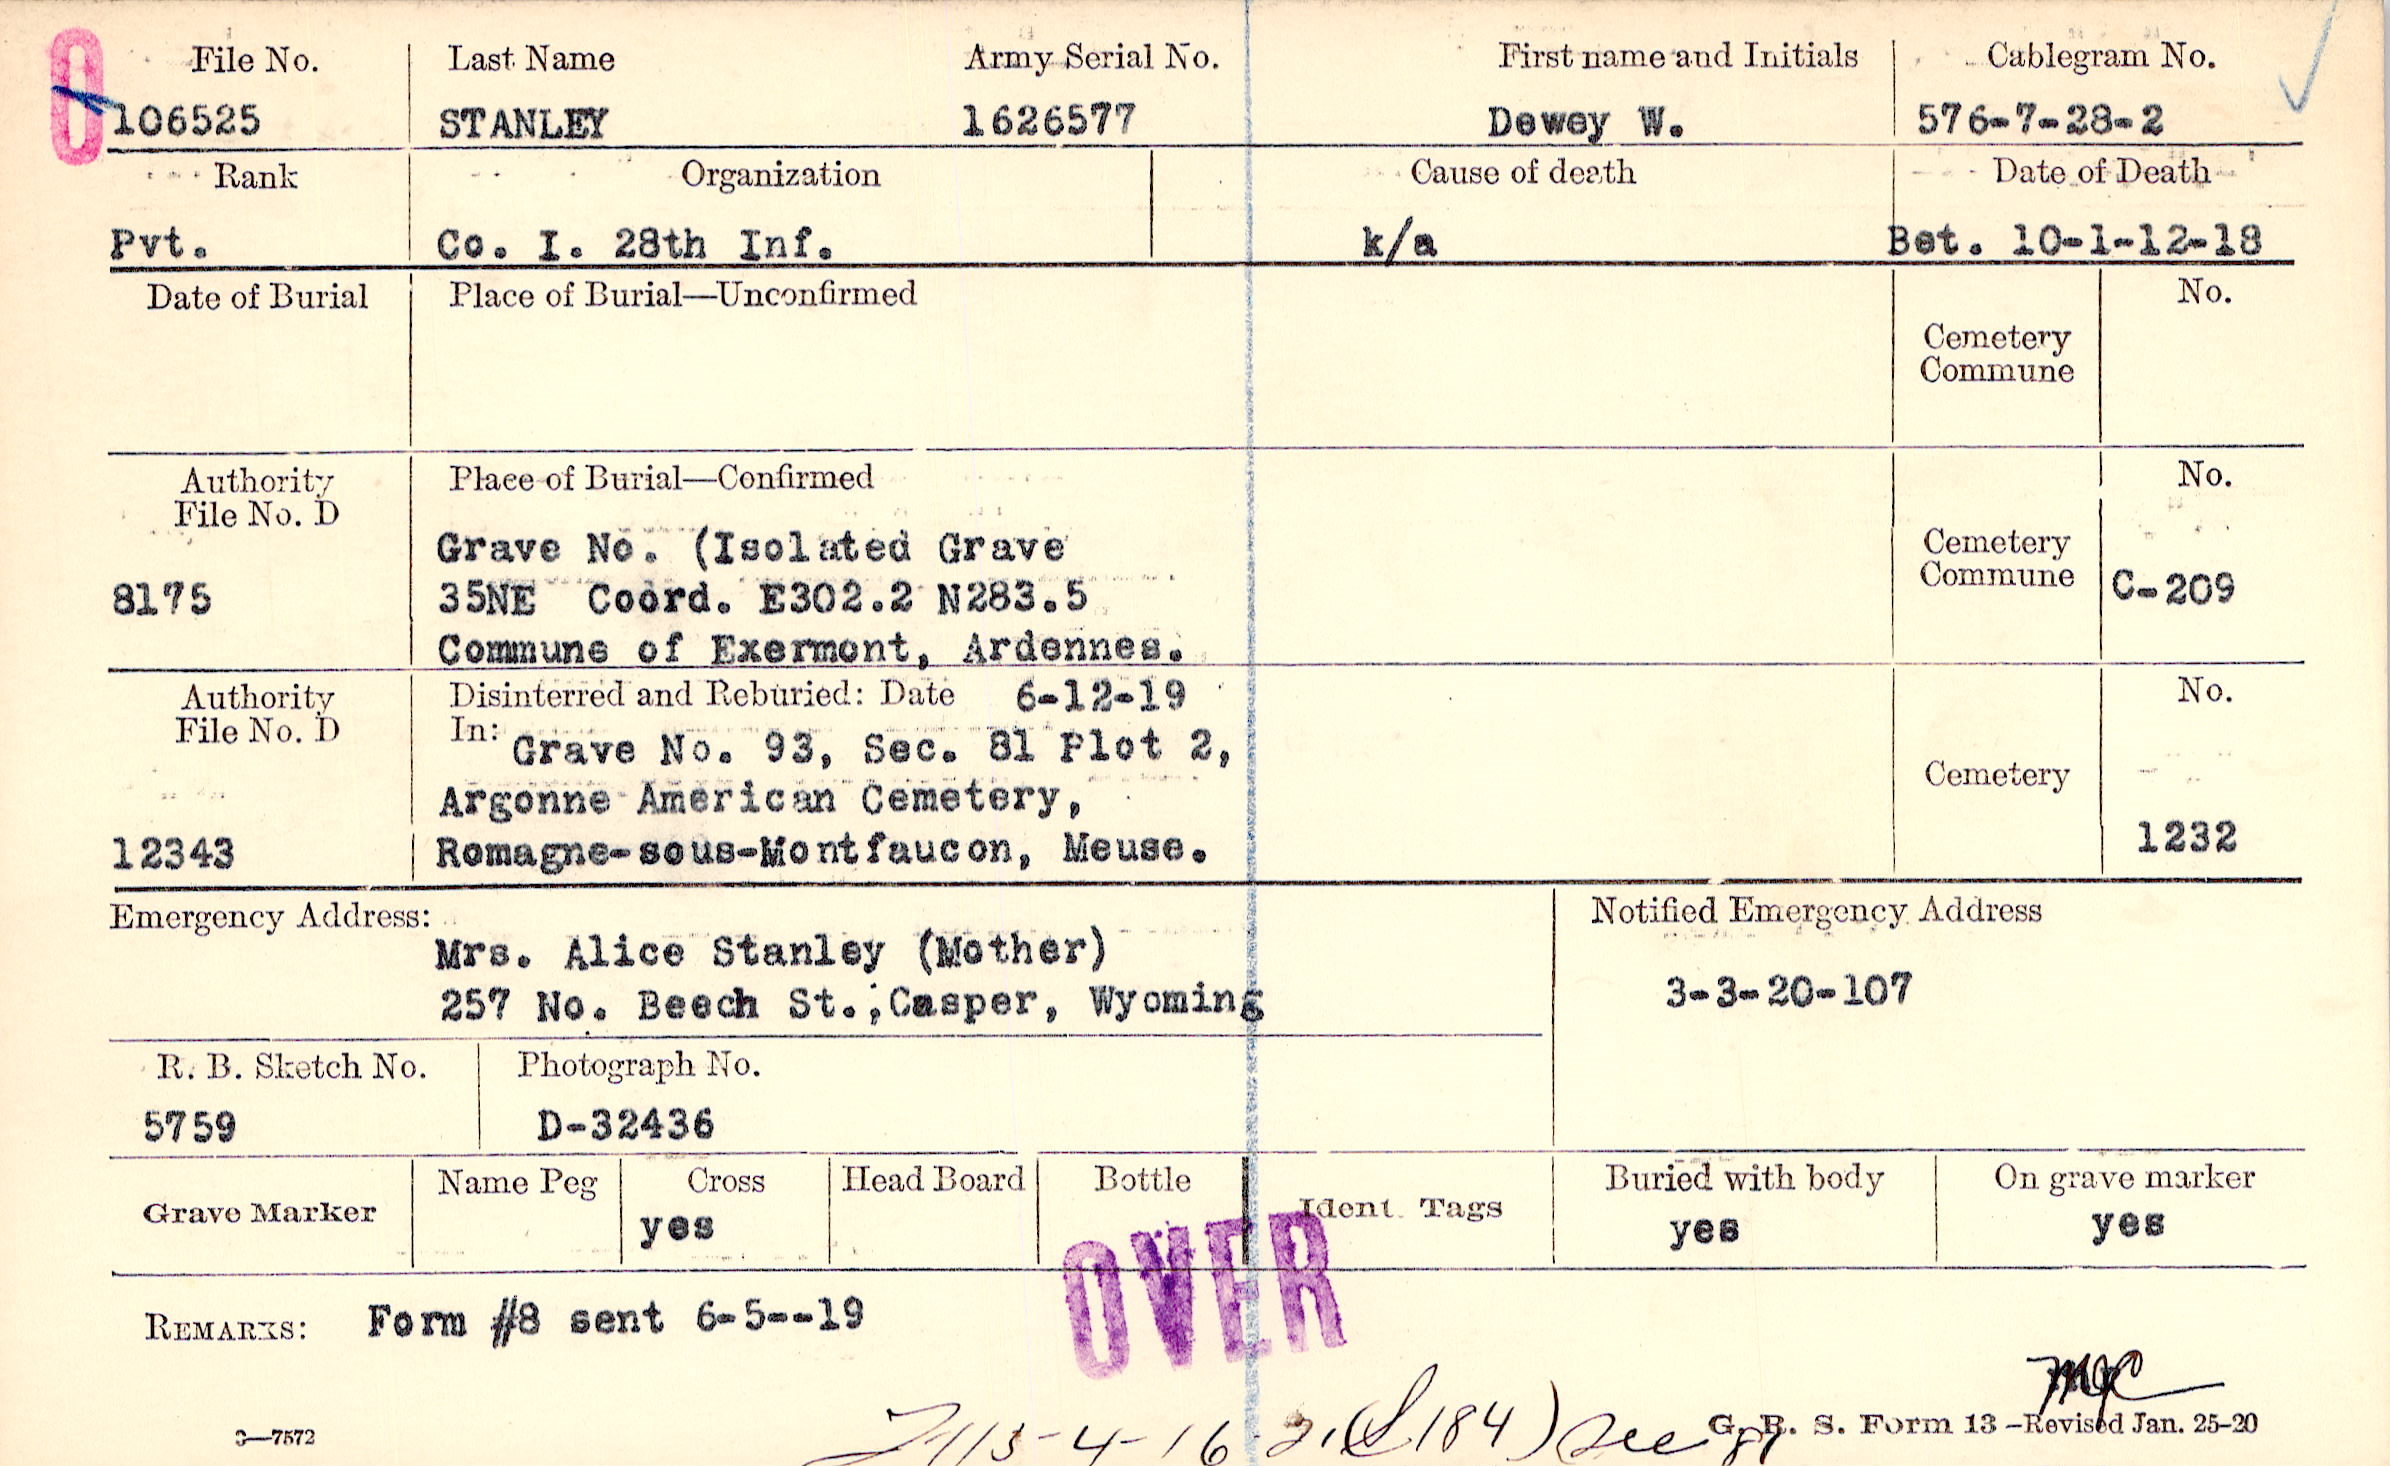 File No. Last Name Army Serial No. First name and Initials Cablegram No.
0 106525 STANLEY 1626577 Dewey W. 576-7-28-2
Rank Organization Cause of death Date of Death
Pvt. Co. I. 28th Inf. k/a Bet. 10-1-12-18
Date of Burial Place of Burial—Unconfirmed No.
Cemetery
Commune
Authority Place of Burial—Confirmed No.
File No. D
Grave No. (Isolated Grave Cemetery
8175 35NE Coord. E302.2 N283.5 Commune C-209
Commune of Exermont, Ardennes.
Authority Disinterred and Reburied: Date 6-12-19 No.
File No. D In: Grave No. 93, Sec. 81 Plot 2,
Argonne American Cemetery, Cemetery
12343 Romagne-sous-Montfaucon, Meuse. 1232
Emergency Address: Notified Emergency Address
Mrs. Alice Stanley (Mother)
257 No. Beech St.,Casper, Wyoming 3-3-20-107
R. B. Sketch No. Photograph No.
5759 D-32436
Grave Marker Name Peg Cross Head Board Bottle Ident. Tags Buried with body On grave marker
yes yes yes
OVER
REMARKS: Form #8 sent 6-5--19
3—7572 4-16-21 (L184) See G. R. S. Form 13—Revised Jan. 25-20